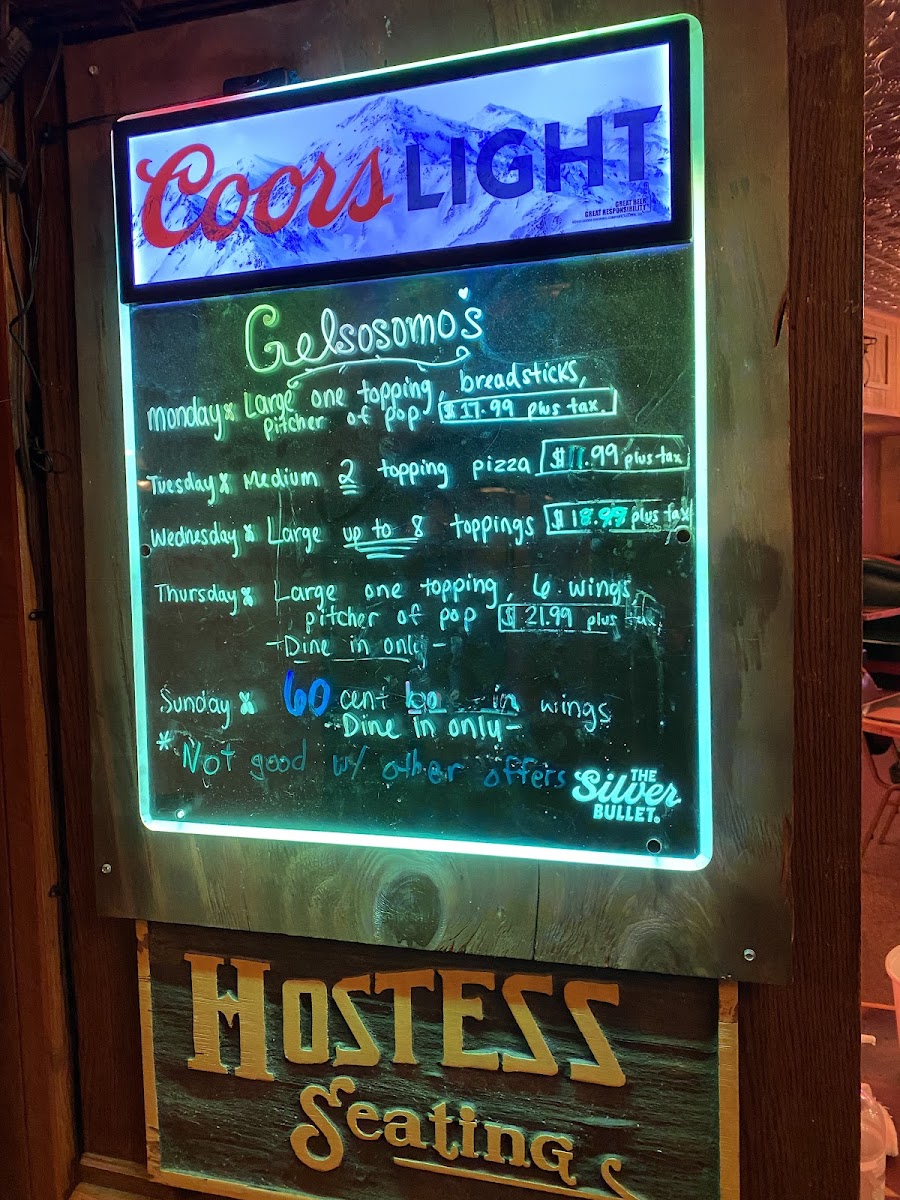 Coors LIGHT
GREAT BEER
GREAT RESPONSIBILITY
Gelsosomo's
Monday Large one topping, breadsticks,
pitcher of pop $17.99 plus tax.
Tuesday Medium 2 topping pizza $11.99 plus tax
Wednesday Large up to 8 toppings $18.99 plus tax
Thursday Large one topping, 6 wings
pitcher of pop $21.99 plus tax
-Dine in only-
Sunday 60 cent in wings
-Dine in only-
*Not good w/ other offers
THE
Silver
BULLET.
HOSTESS
Seating